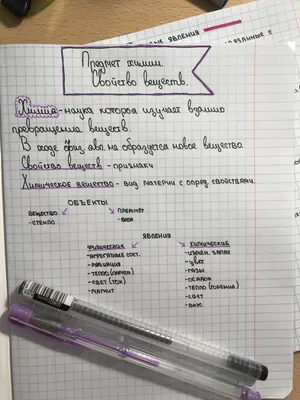 явления
Предмет химии.
Свойство веществ.
Химия - наука которая изучает взаимо
превращение веществ.
В ходе физ. явл. не образуется новое вещество
Свойство веществ - признаки
Химическое вещество - вид материи с опред. свойствами.
ОБЪЕКТЫ
ВЕЩЕСТВО ПРЕДМЕТ
- СТЕКЛО - ВАЗА
ЯВЛЕНИЯ
ФИЗИЧЕСКИЕ ХИМИЧЕСКИЕ
- АГРЕГАТНЫЕ СОСТ. - ИЗМЕН. ЗАПАХ
- РАДИАЦИЯ - ЦВЕТ
- ТЕПЛО - ГАЗЫ
- СВЕТ (ТОК) - ОСАДОК
- МАГНИТ - ТЕПЛО (ГОРЕНИЕ)
- СВЕТ
- ВКУС